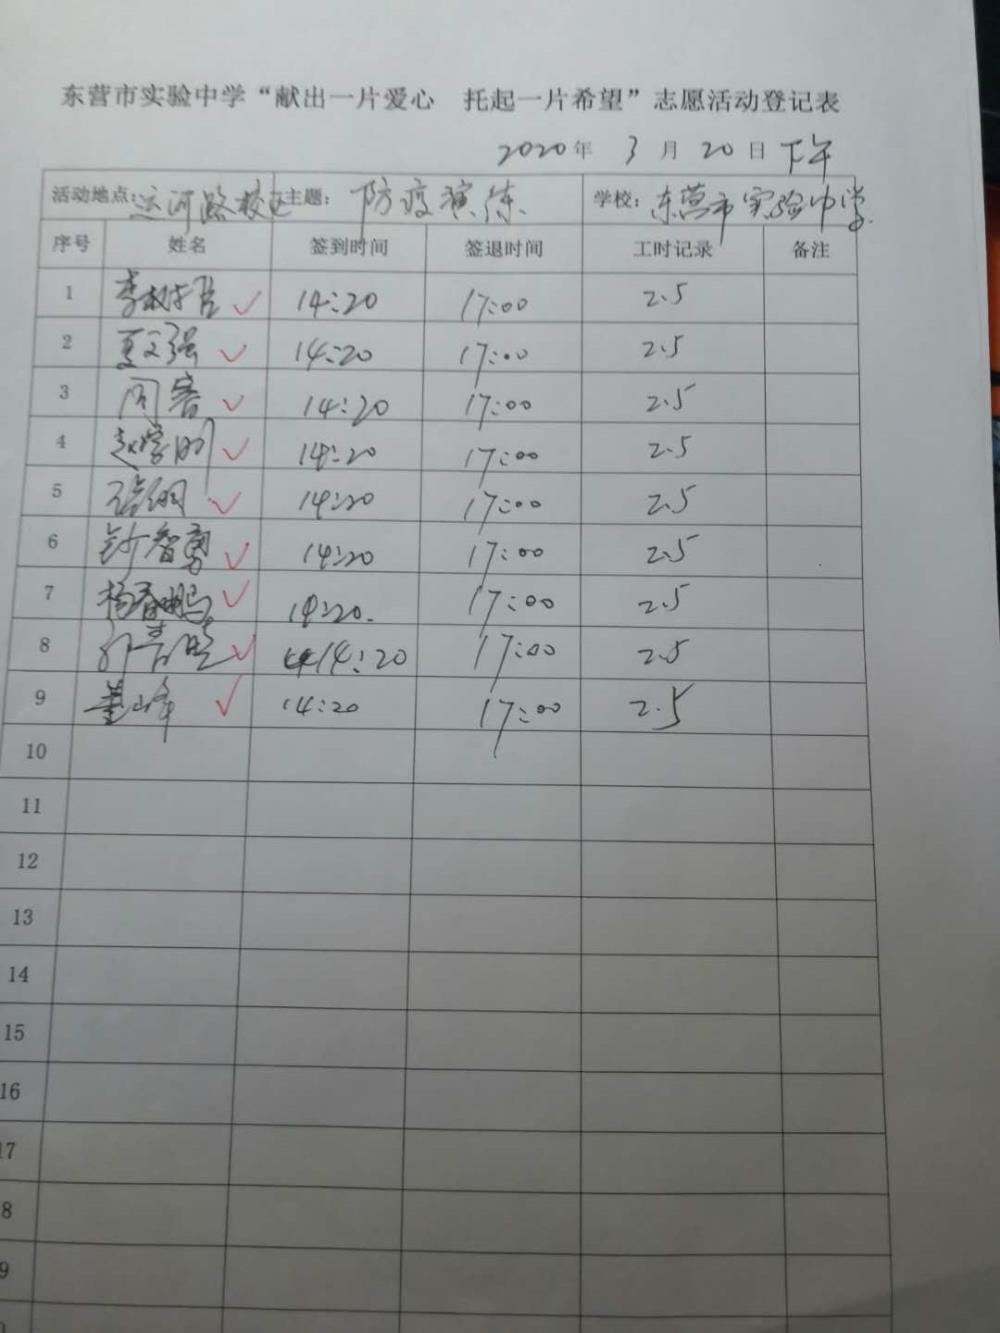 东营市实验中学“献出一片爱心 托起一片希望”志愿活动登记表
2020年 3 月 20 日 下午
活动地点:运河路校区 主题: 防疫演练 学校: 东营市实验中学
序号 姓名 签到时间 签退时间 工时记录 备注
1 14:20 17:00 2.5
2 夏文强 14:20 17:00 2.5
3 周客 14:20 17:00 2.5
4 14:20 17:00 2.5
5 14:20 17:00 2.5
6 智勇 14:20 17:00 2.5
7 杨春鹏 14:20. 17:00 2.5
8 14:20 17:00 2.5
9 董峰 14:20 17:00 2.5
10
11
12
13
14
15
16
17
8
9